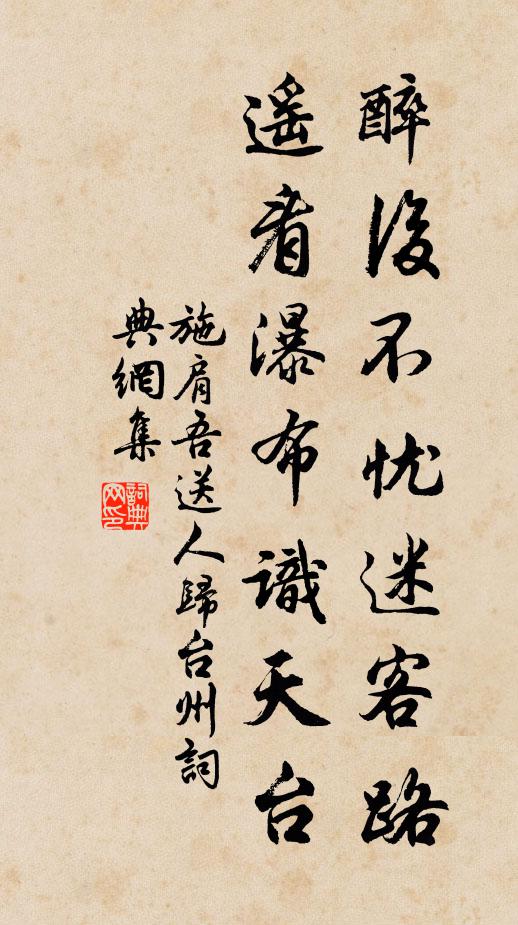 醉後不忧迷客路
遥看瀑布識天台
施肩吾送人歸台州詞
典網集
詞典网印